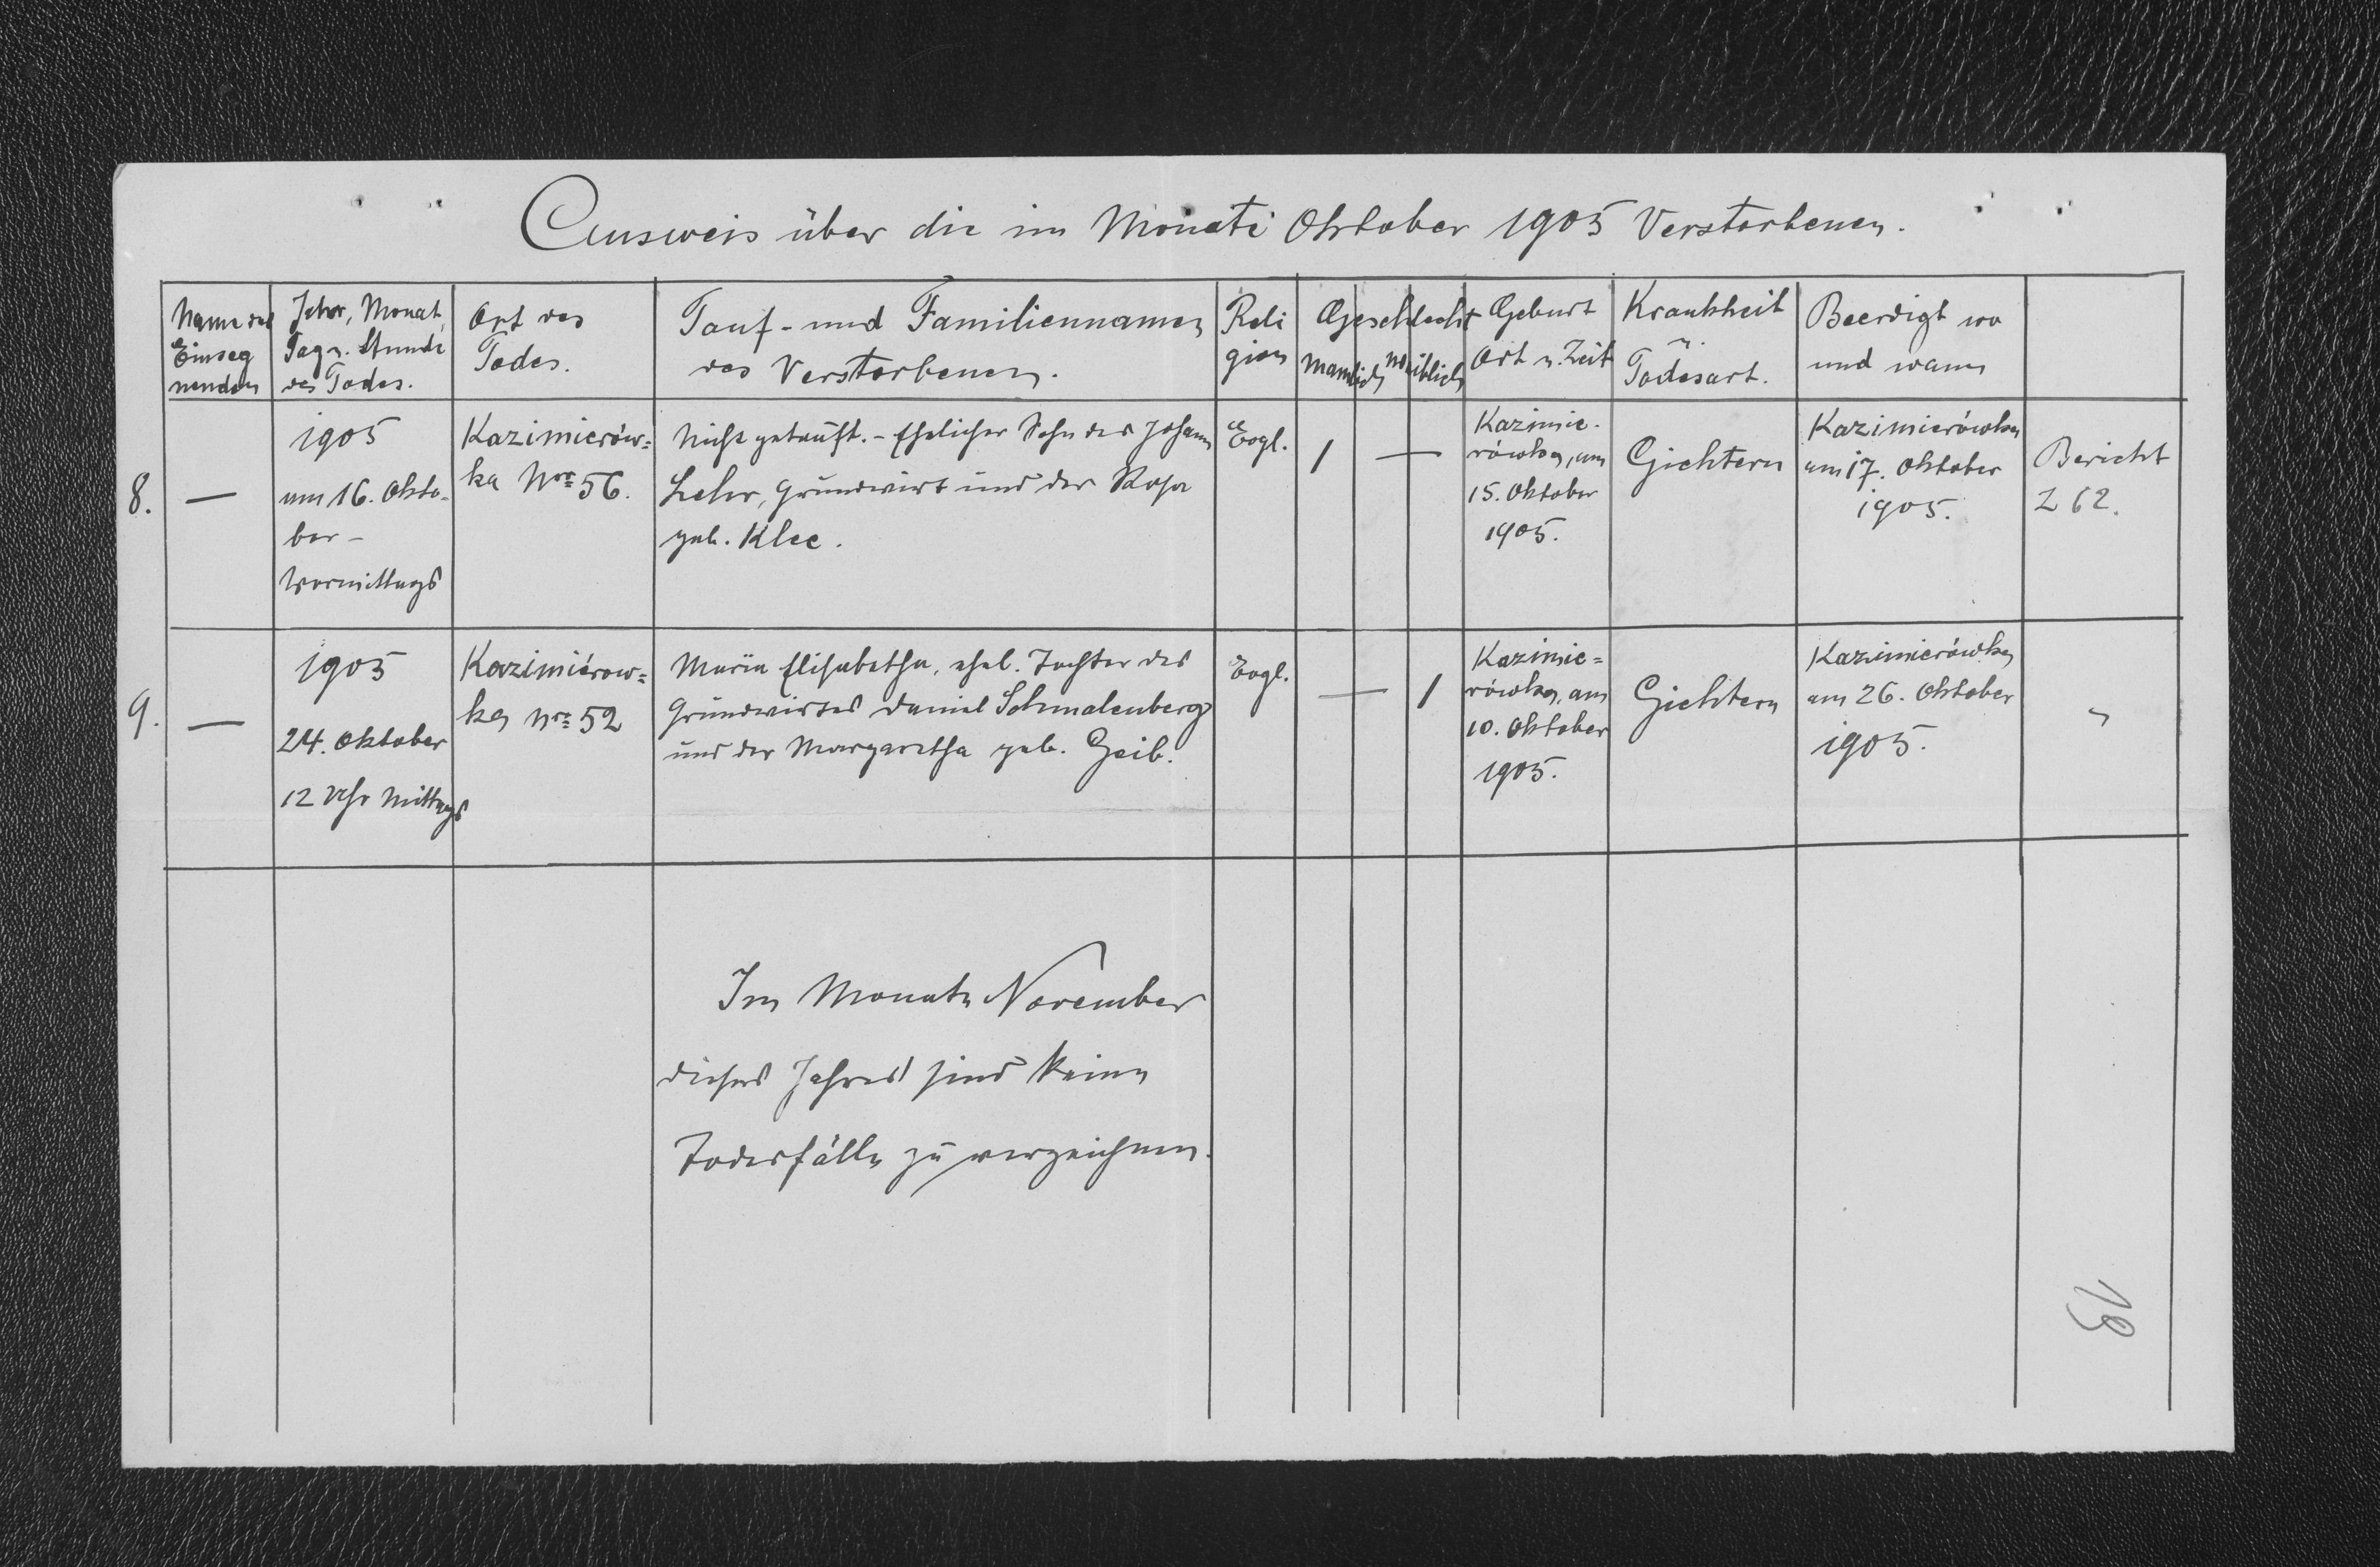 Ausweis über die im Monate Oktober 1905 Verstorbenen.
Name des
Einseg
nenden
Jahr, Monat,
Tag u. Stunde
des Todes.
Ort des
Todes.
Tauf- und Familiennamen
des Verstorbenen.
Reli
gion
Geschlecht
Männlich Weiblich
Geburt
Ort u. Zeit
Krankheit
u.
Todesart.
Beerdigt wo
und wann
8.
—
1905
am 16. Okto-
ber –
Vormittags
Kazimierów=
ka Nro 56.
Nicht getauft. – Ehelicher Sohn des Johann
Lehr, Grundwirt und der Rosa
geb. Klee.
Evgl.
1
—
Kazimie-
rówka, am
15. Oktober
1905.
Gichtern
Kazimierówka
am 17. Oktober
1905.
Bericht
Z 62.
9.
—
1905
24. Oktober
12 Uhr Mittags
Kazimiérow=
ka Nro 52
Maria Elisabetha, ehel. Tochter des
Grundwirtes Daniel Schmalenberg
und der Margaretha geb. Geib.
Evgl.
—
1
Kazimie=
rówka, am
10. Oktober
1905.
Gichtern
Kazimierówka
am 26. Oktober
1905.
"
Im Monate November
dieses Jahres sind keine
Todesfälle zu verzeichnen.